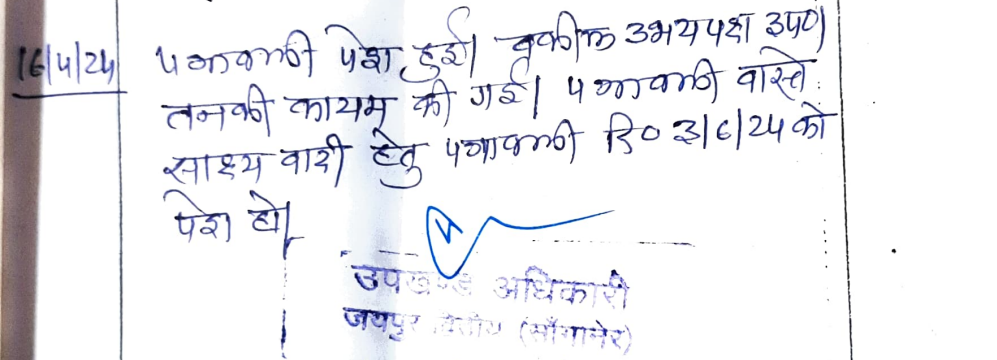 16/4/24 पत्रावली पेश हुई। वकील उभयपक्ष उप०।
तनकी कायम की गई। पत्रावली वास्ते
साक्ष्य वादी हेतु पत्रावली दि० 3/6/24 को
पेश हो।
उपखण्ड अधिकारी
जयपुर द्वितीय (सांगानेर)